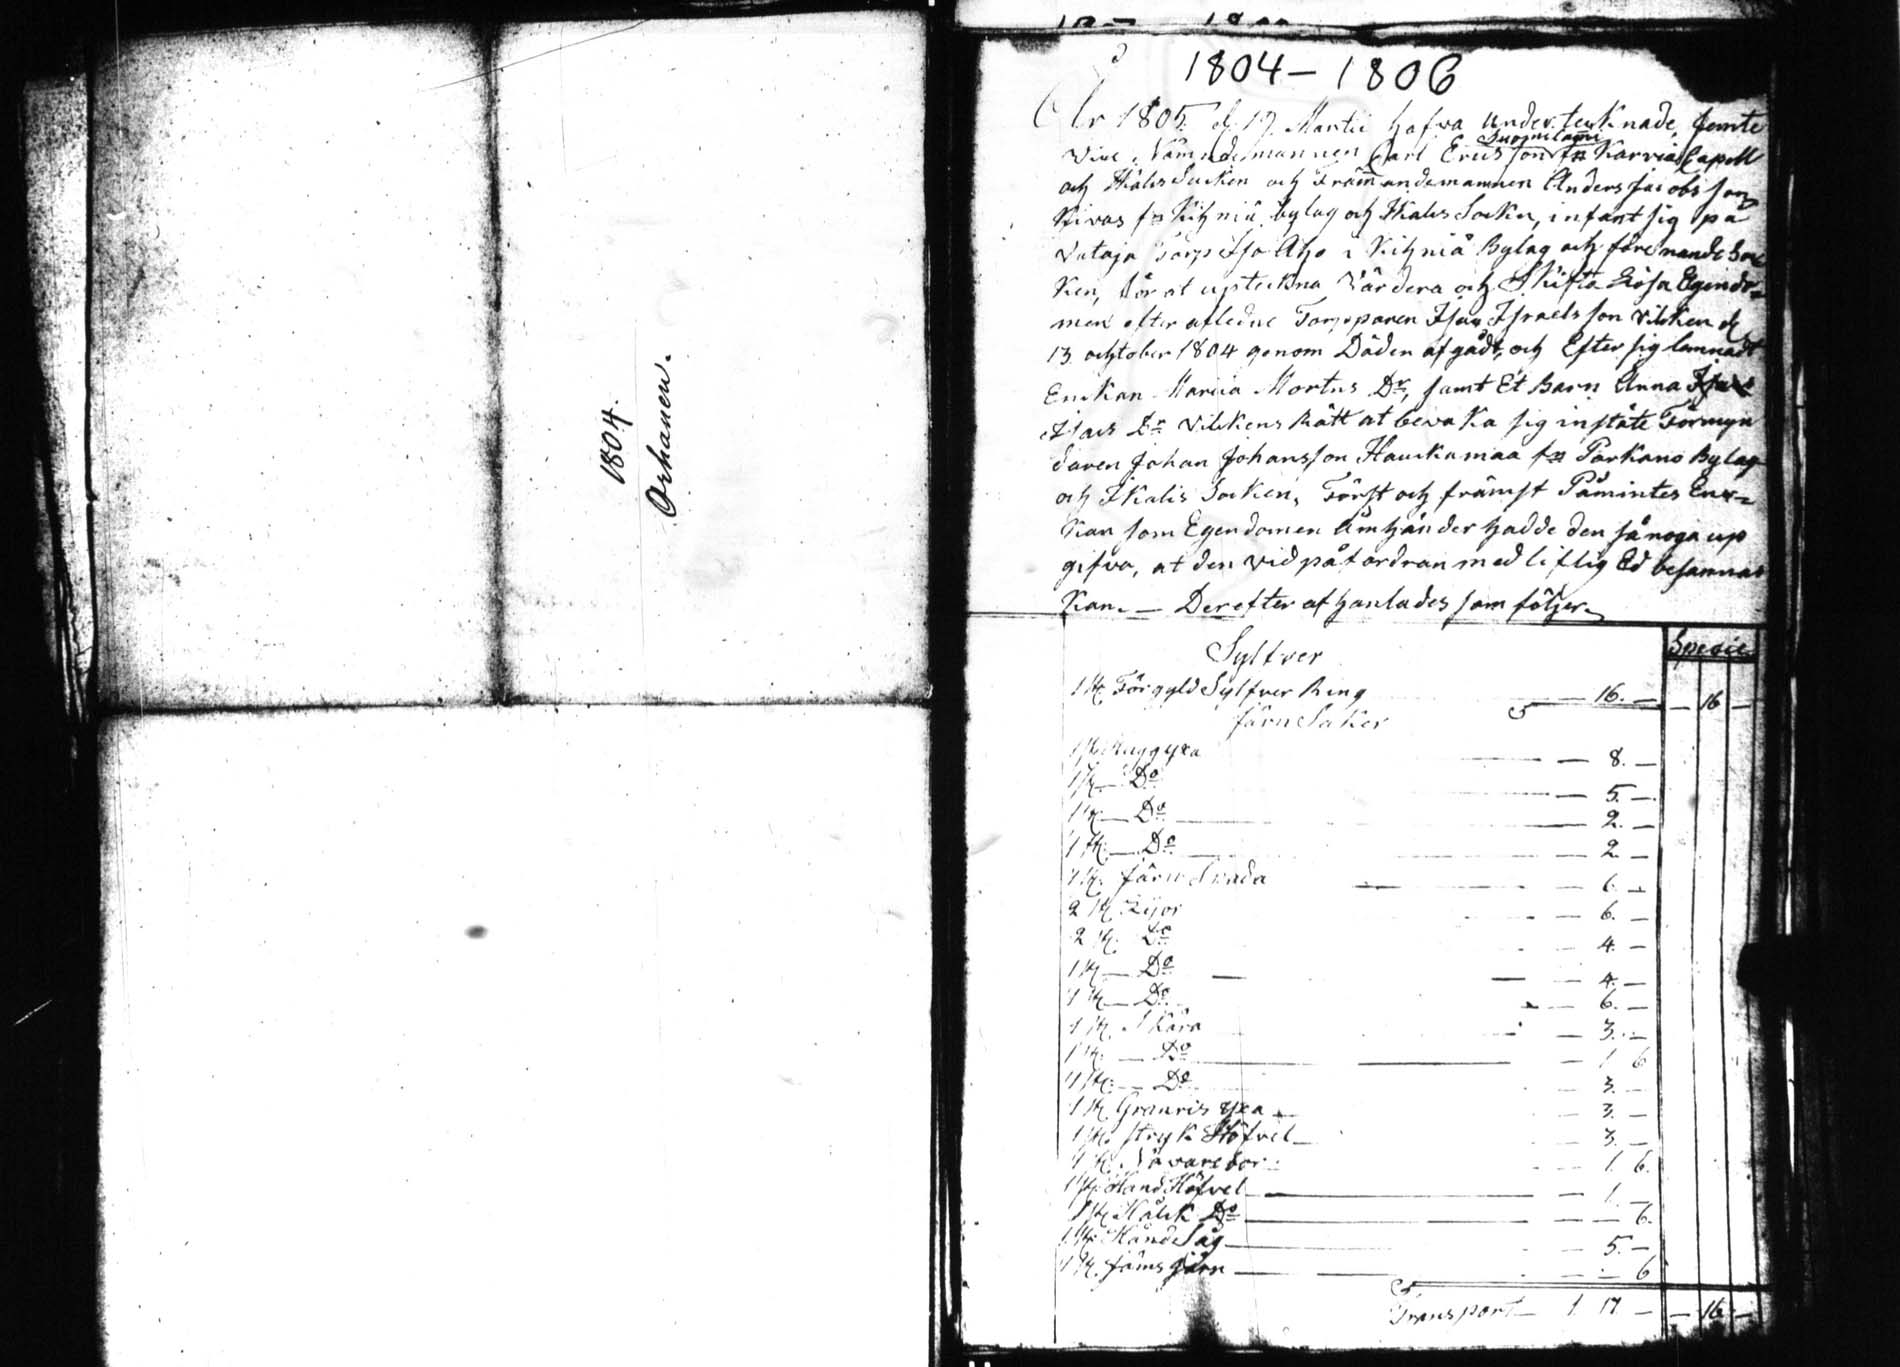 1804.
Orhanen.
1804–1806
År 1805. d. 19 Martii hafva undertecknade Jemte
Vice Nämndemannen Carl Ericsson fn Karvia Capell
Suomilami
och Ikalis Socken och Främandemannen Anders Jacobsson
Kivas fn Kihniä bylag och Ikalis Socken, infant sig på
Vataja Torp Isoaho i Kihniä Bylag och förenande Soc
ken, för at upteckna Värdera och Skifta Lösa Egendo=
men efter afledne Torpparen Isac Israelsson vilcken d
13 october 1804 genom Döden afgådt, och Efter sig lemnadt
Enckan Maria Mortns Dr, samt Et Barn Anna
Isacs Dr vilckens Rätt at bevaka sig instäte Förmyn
daren Johan Johansson Hauckamaa fn Parkano Bylag
och Ikalis Socken, Först och främst Påmintes Enc=
kan som Egendomen Omhänder hadde den så noga up
gifva, at den vid påfordran med liflig Ed besannas
kan. — Derefter afhanlades som följer
Specie
Sylfver
1 st. Förgyld Sylfver Ring — 16. — — 16 —
Järn Saker
1 st. Huggyxa — 8. —
1 st. — Do — 5. —
1 st. — Do — 2. —
1 st. — Do — 2. —
1 st. Järn Spada — 6. —
2 st. Lijor — 6. —
2 st. Do — 4. —
1 st. — Do — 4. —
1 st. — Do — 6. —
1 st. Skära — 3. —
1 st. — Do — 1 6
1 st. — Do — 3. —
1 st. Granris yxa — 3. —
1 st. stryk Höfvel — 3. —
1 st. Navare bor — 1. 6.
1 st. Hand Höfvel — 1. —
1 st. Hålck Do — — 6.
1 st. Hand Såg — 5. —
1 st. Jäms järn — — 6
Transport — 1. 17 — — 16 —